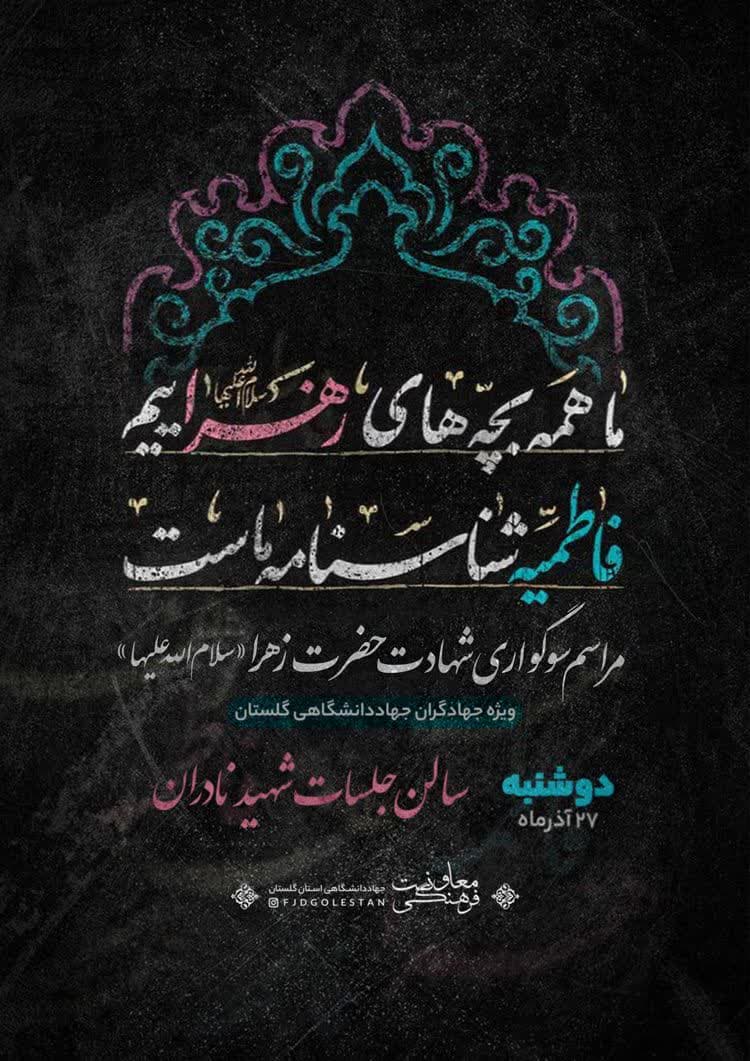 ما همه بچّه های زهرا سلام الله علیها ییم
فاطمیّه شناسنامه ماست
مراسم سوگواری شهادت حضرت زهرا «سلام الله علیها»
ویژه جهادگران جهاددانشگاهی گلستان
دوشنبه
۲۷ آذرماه
سالن جلسات شهید نادران
معاونت
فرهنگی
جهاددانشگاهی استان گلستان
FJDGOLESTAN